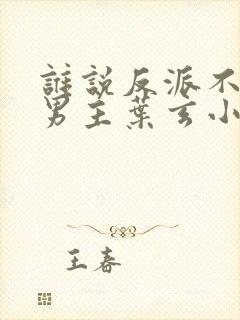 誰說反派不
男主葉玄小
王春